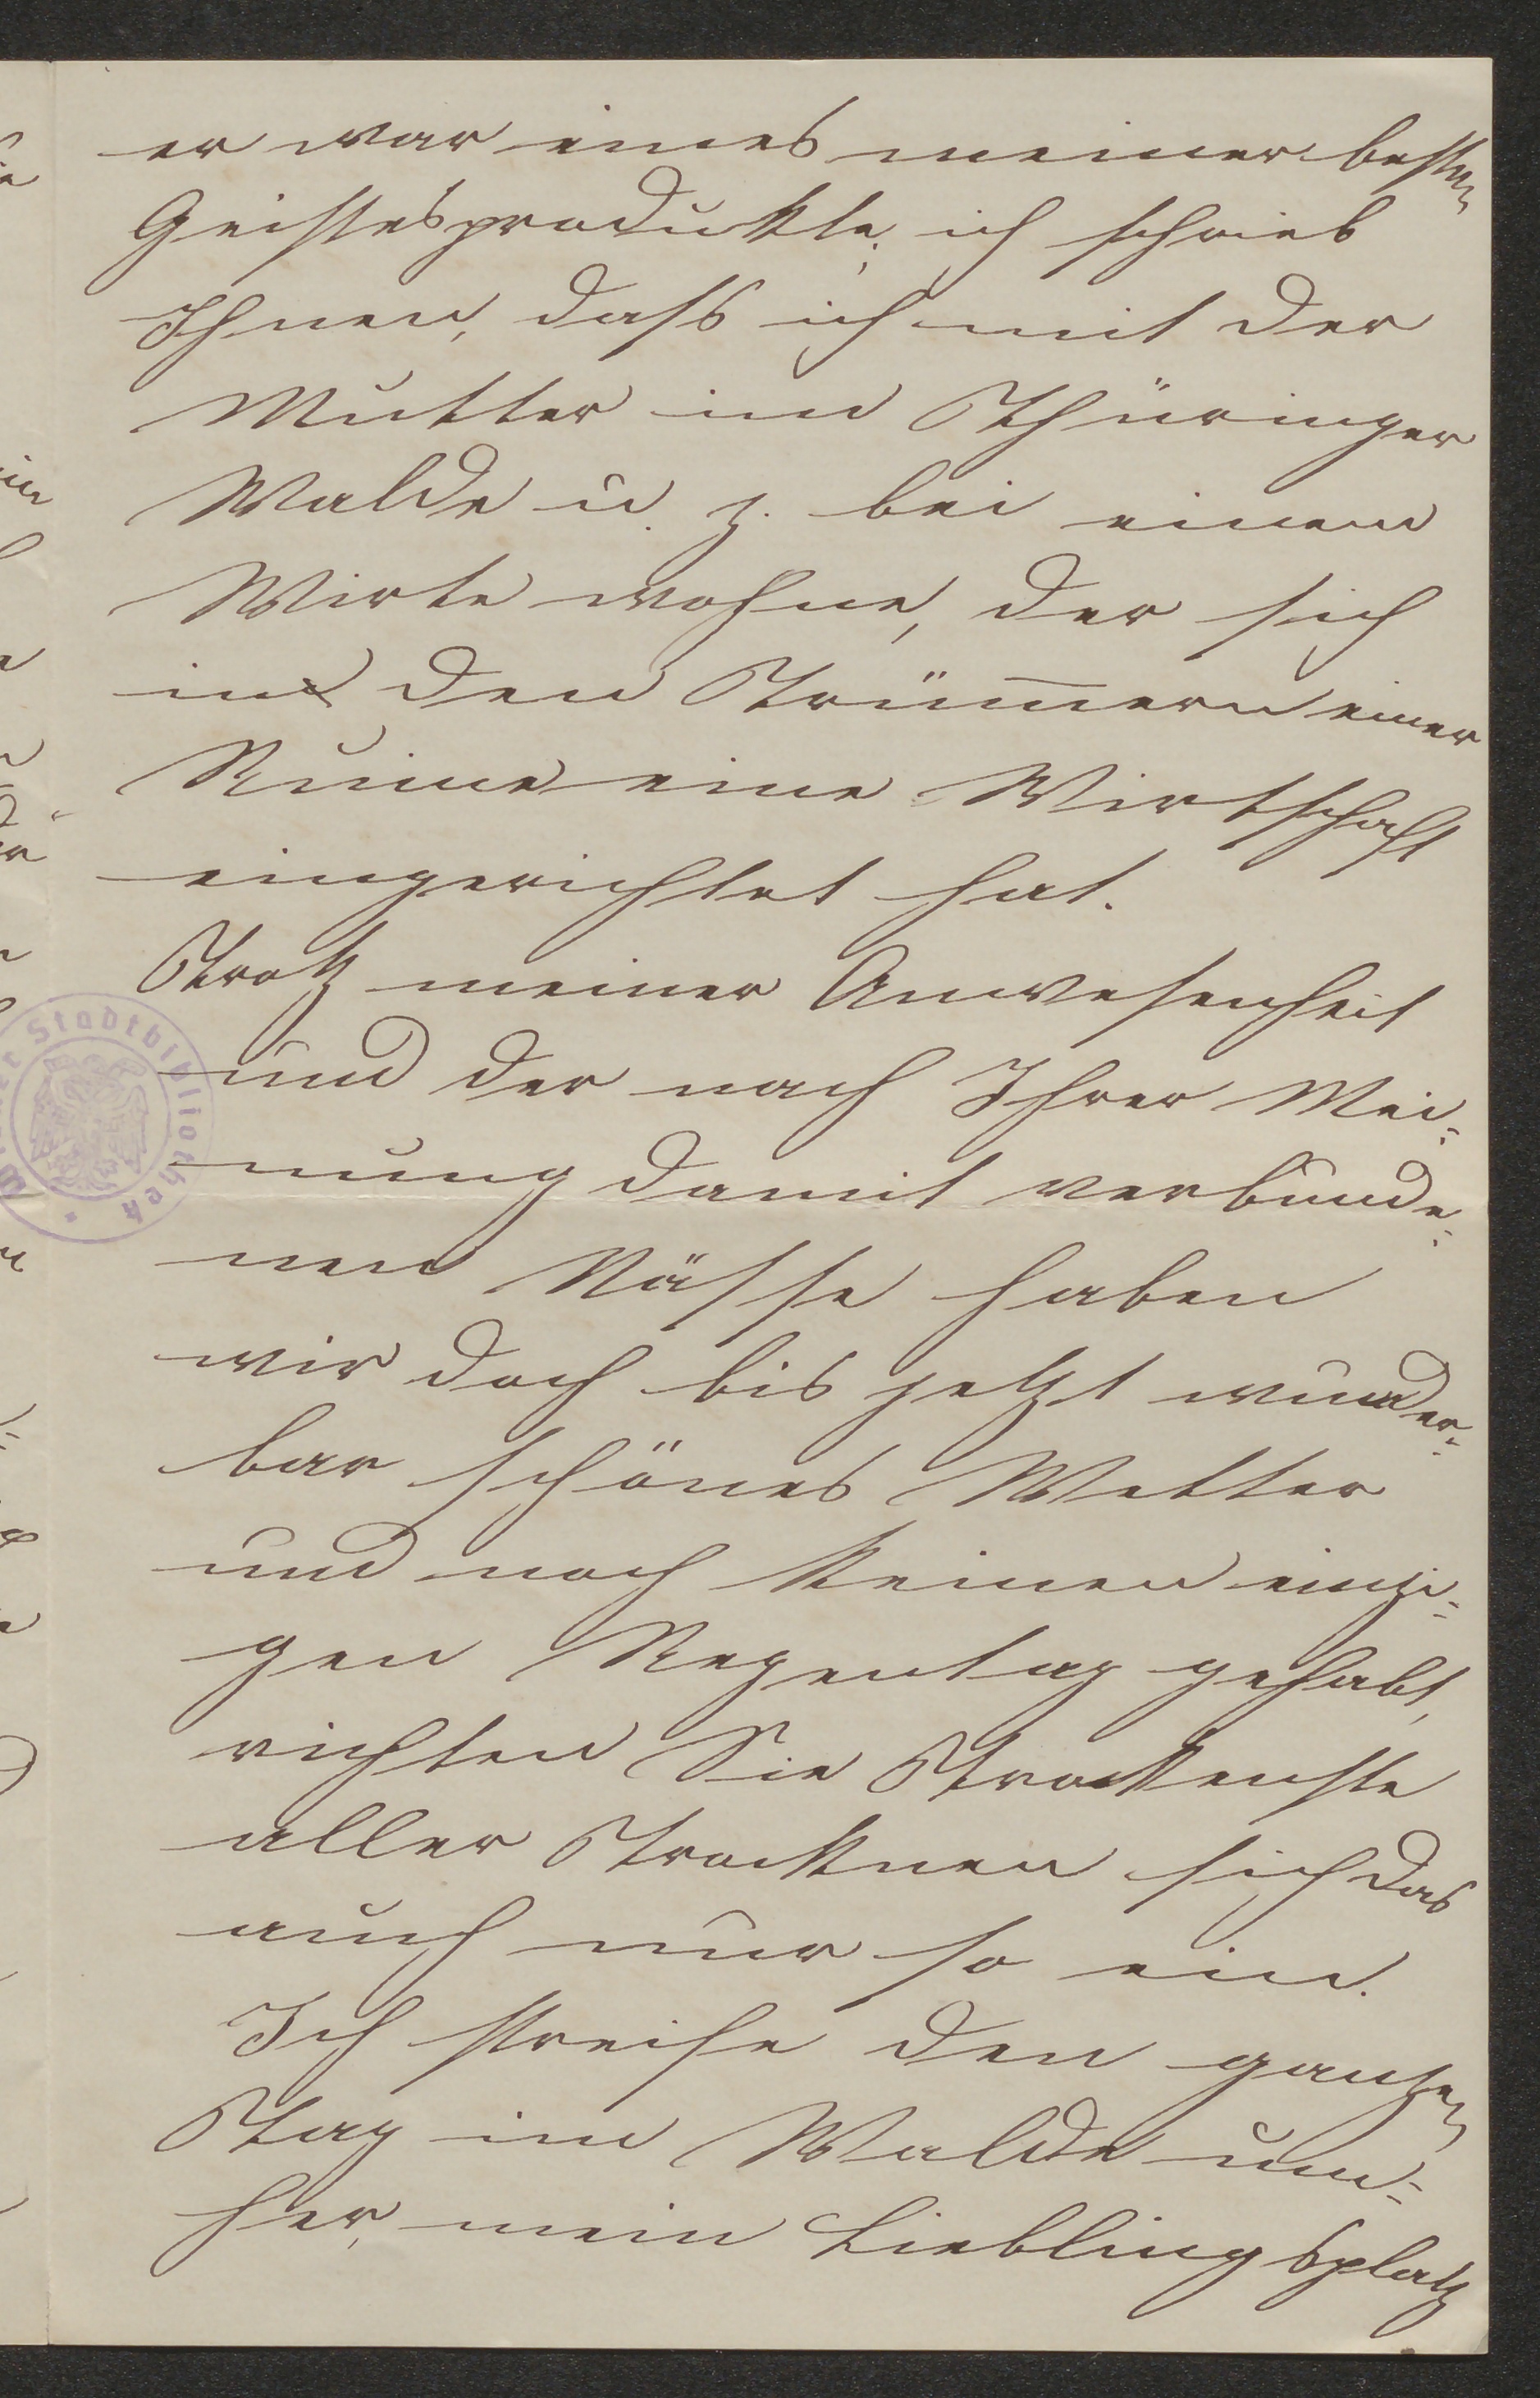 er war eines meiner besten
Geistesprodukte; ich schrieb
Ihnen, dass ich mit der
Mutter im Thüringer
Walde u. z. bei einem
Wirte wohne, der sich
in den Trüm̅ern einer
Ruine eine Wirtschaft
eingerichtet hat.
Trotz meiner Anwesenheit
und der nach Ihrer Mei-
nung damit verbunde-
nen Nässe haben
wir doch bis jetzt wunder-
bar schönes Wetter
und noch keinen einzi-
gen Regentag gehabt,
richten Sie Trockenste
aller Trocknen sich das
auch nur so ein.
Ich streife den ganzen
Tag im Walde um-
her, mein Lieblingsplatz
Stadtbibliothek